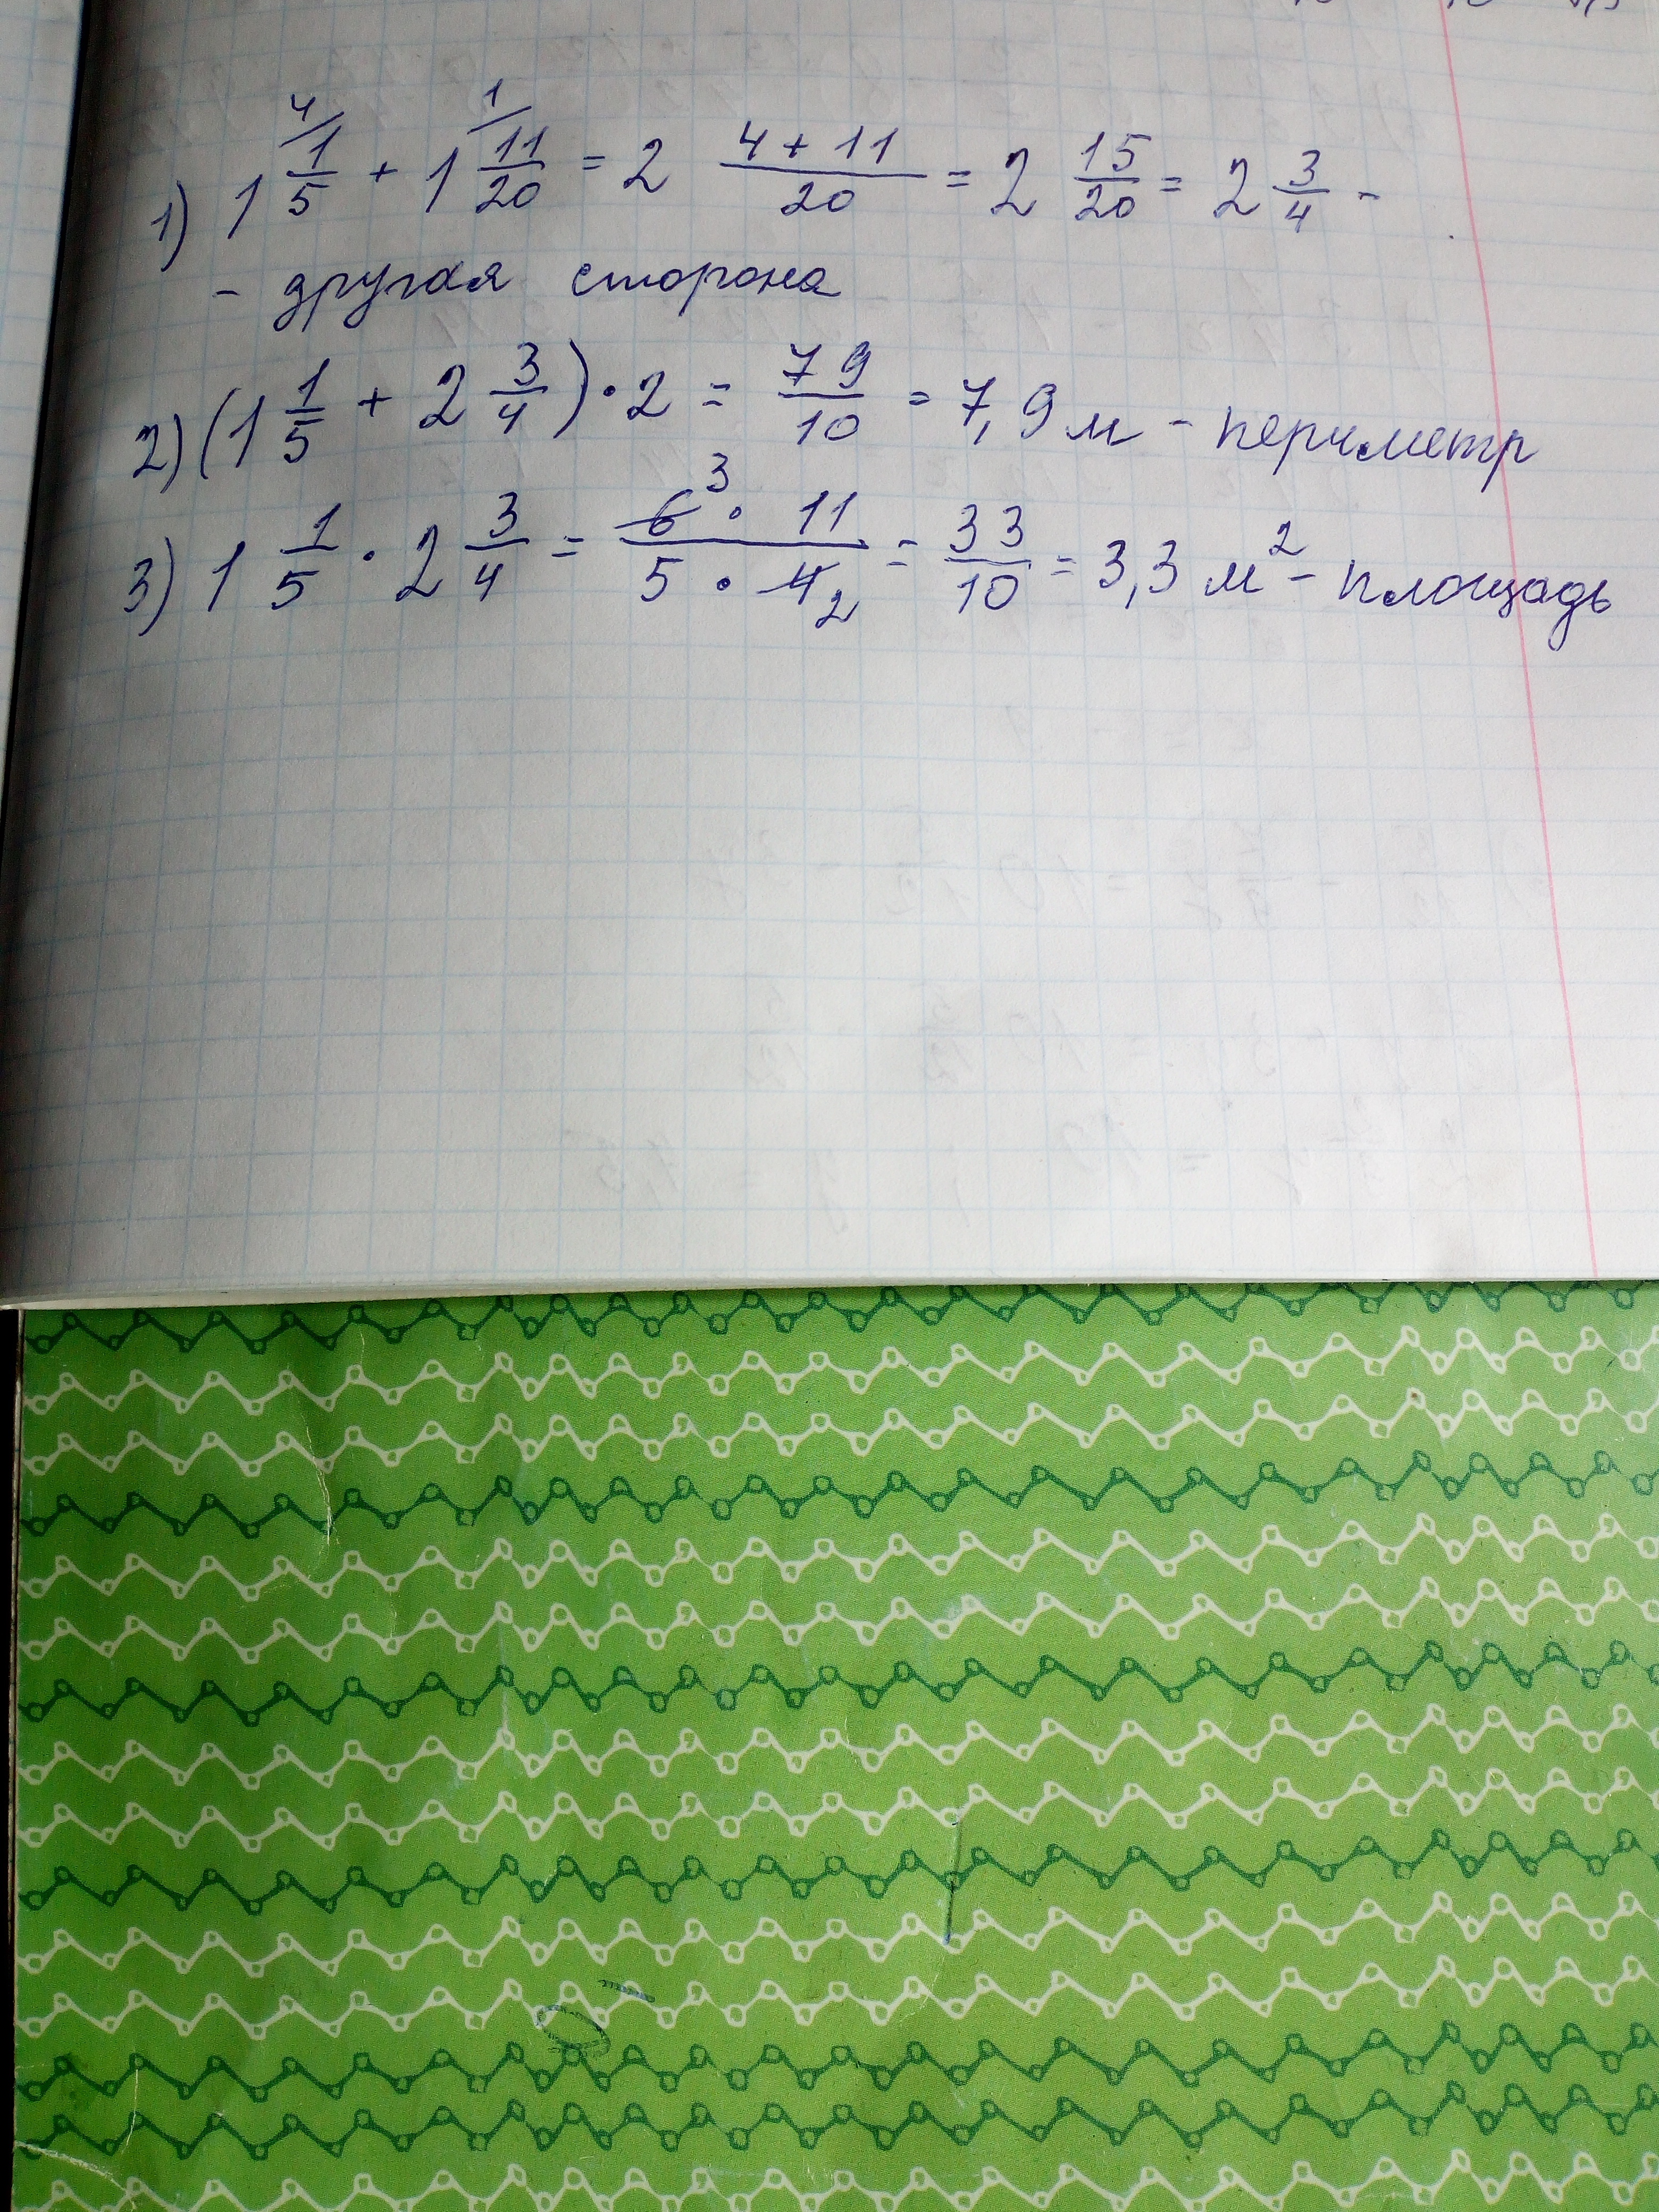 1) 1 4/ 1/5 + 1 1/ 11/20 = 2 (4 + 11)/20 = 2 15/20 = 2 3/4 -
- другая сторона
2) (1 1/5 + 2 3/4) · 2 = 79/10 = 7,9 м - периметр
3) 1 1/5 · 2 3/4 = (6 3 · 11)/(5 · 4 2) = 33/10 = 3,3 м² - площадь